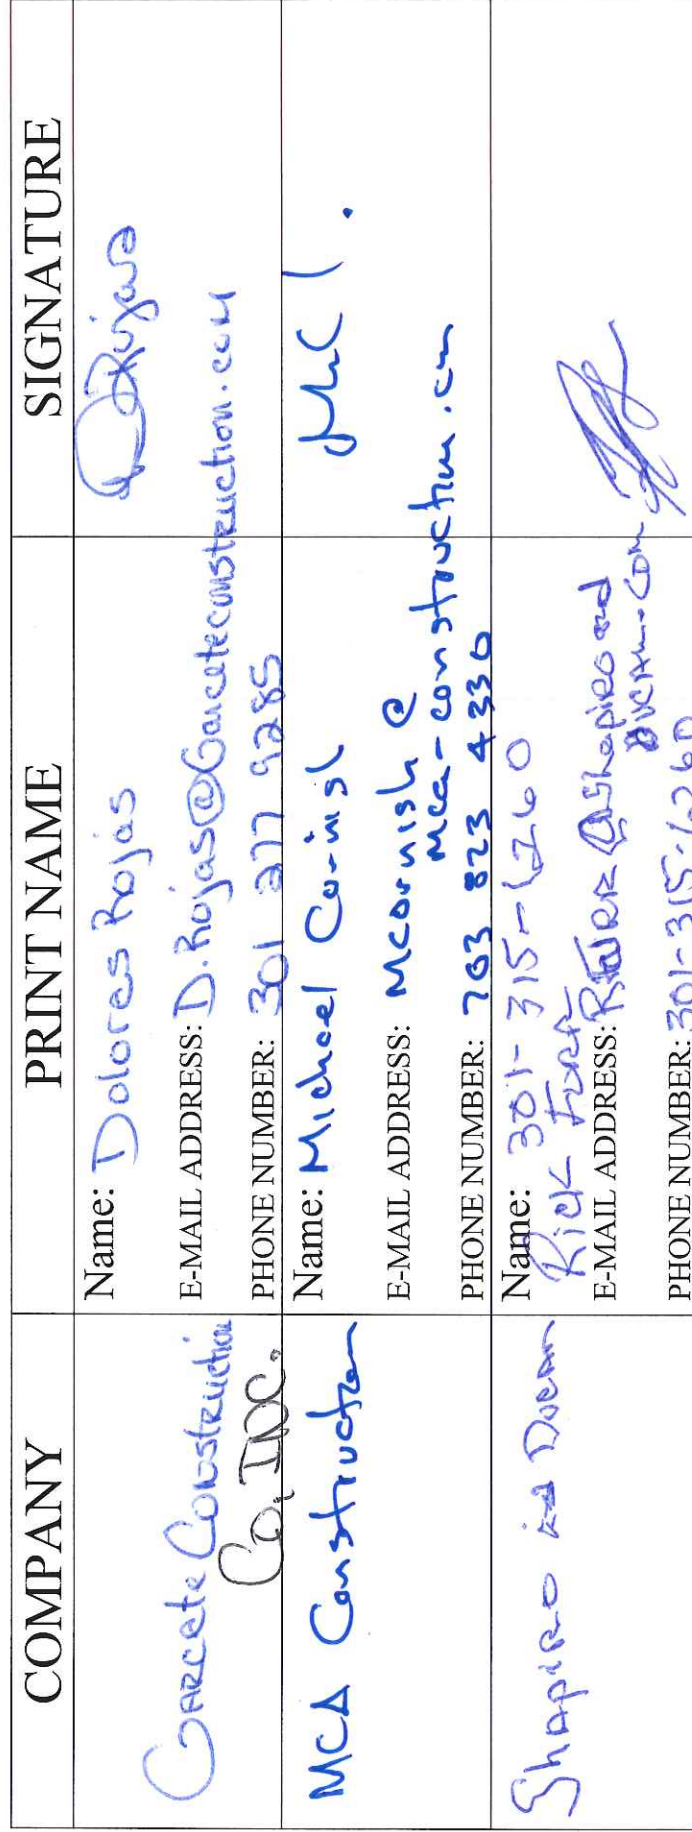 COMPANY
PRINT NAME
SIGNATURE
GARCETE CONSTRUCTION
CO, INC.
Name: Dolores Rojas
E-MAIL ADDRESS: D.Rojas@Garceteconstruction.com
PHONE NUMBER: 301 277 9285
DRojas
MCA Construction
Name: Michael Cornish
E-MAIL ADDRESS: Mcornish@
mca-construction.com
PHONE NUMBER: 703 823 4330
Shapiro and Ducan
Name: 301-315-6260
Rick
E-MAIL ADDRESS: @Shapiro and
Ducan.com
PHONE NUMBER: 301-315-6260